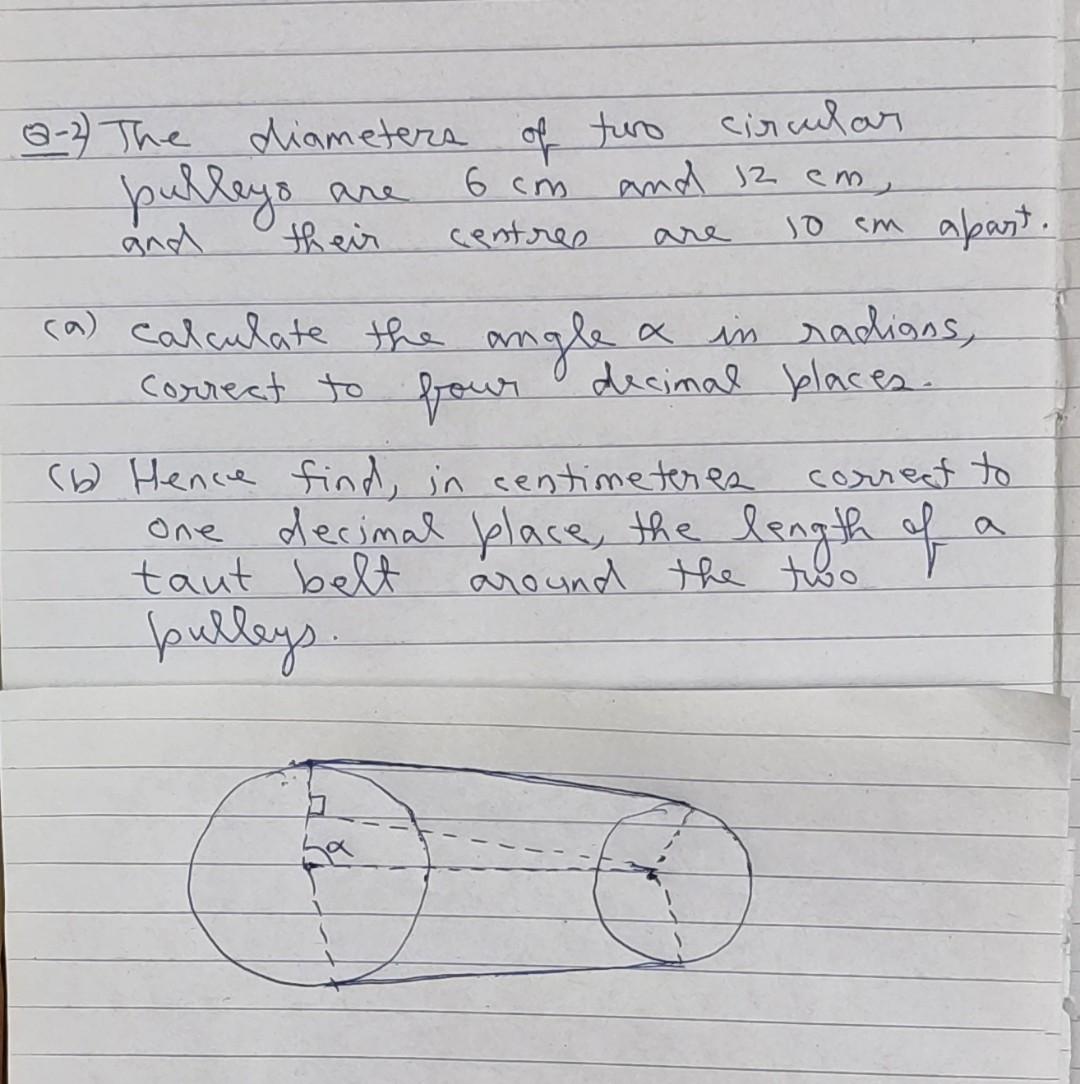 Q-2) The diameters of two circular
pulleys are 6 cm and 12 cm,
and their centres are 10 cm apart.
(a) Calculate the angle α in radians,
correct to four decimal places.
(b) Hence find, in centimeteres correct to
one decimal place, the length of a
taut belt around the two
pulleys.
α